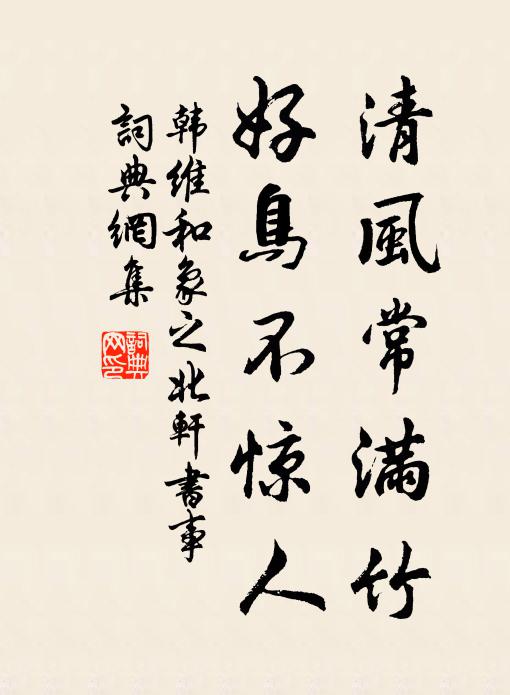 清風常滿竹
好鳥不惊人
韩維和象之北軒書事
詞典網集
詞典网印